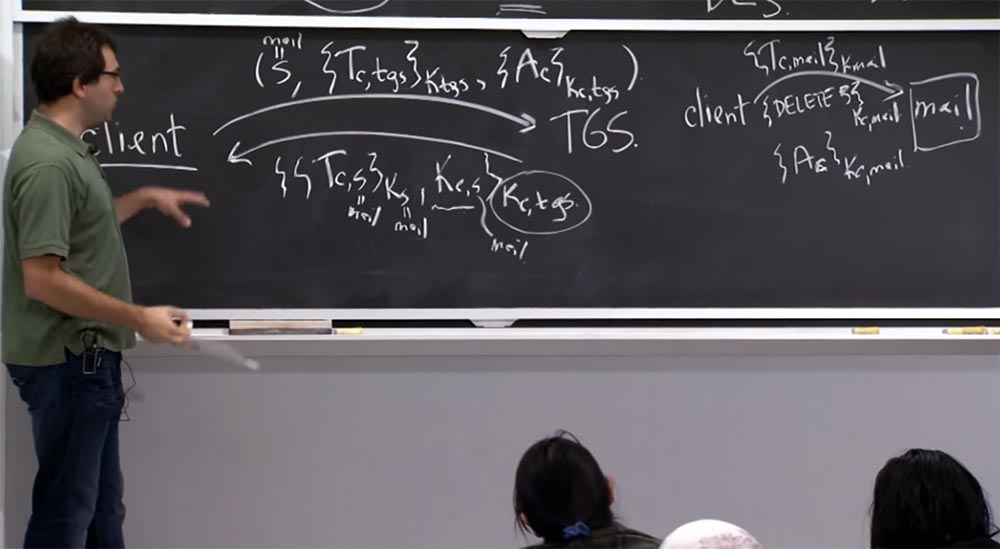 DES.
mail
=
(S, {Tc,tgs}Ktgs, {Ac}Kc,tgs).
client
TGS.
{{Tc,s}Ks, Kc,s}Kc,tgs.
= mail
= mail
mail
{Tc,mail}Kmail
client
{DELETE 5}Kc,mail
mail
{Ac}Kc,mail.